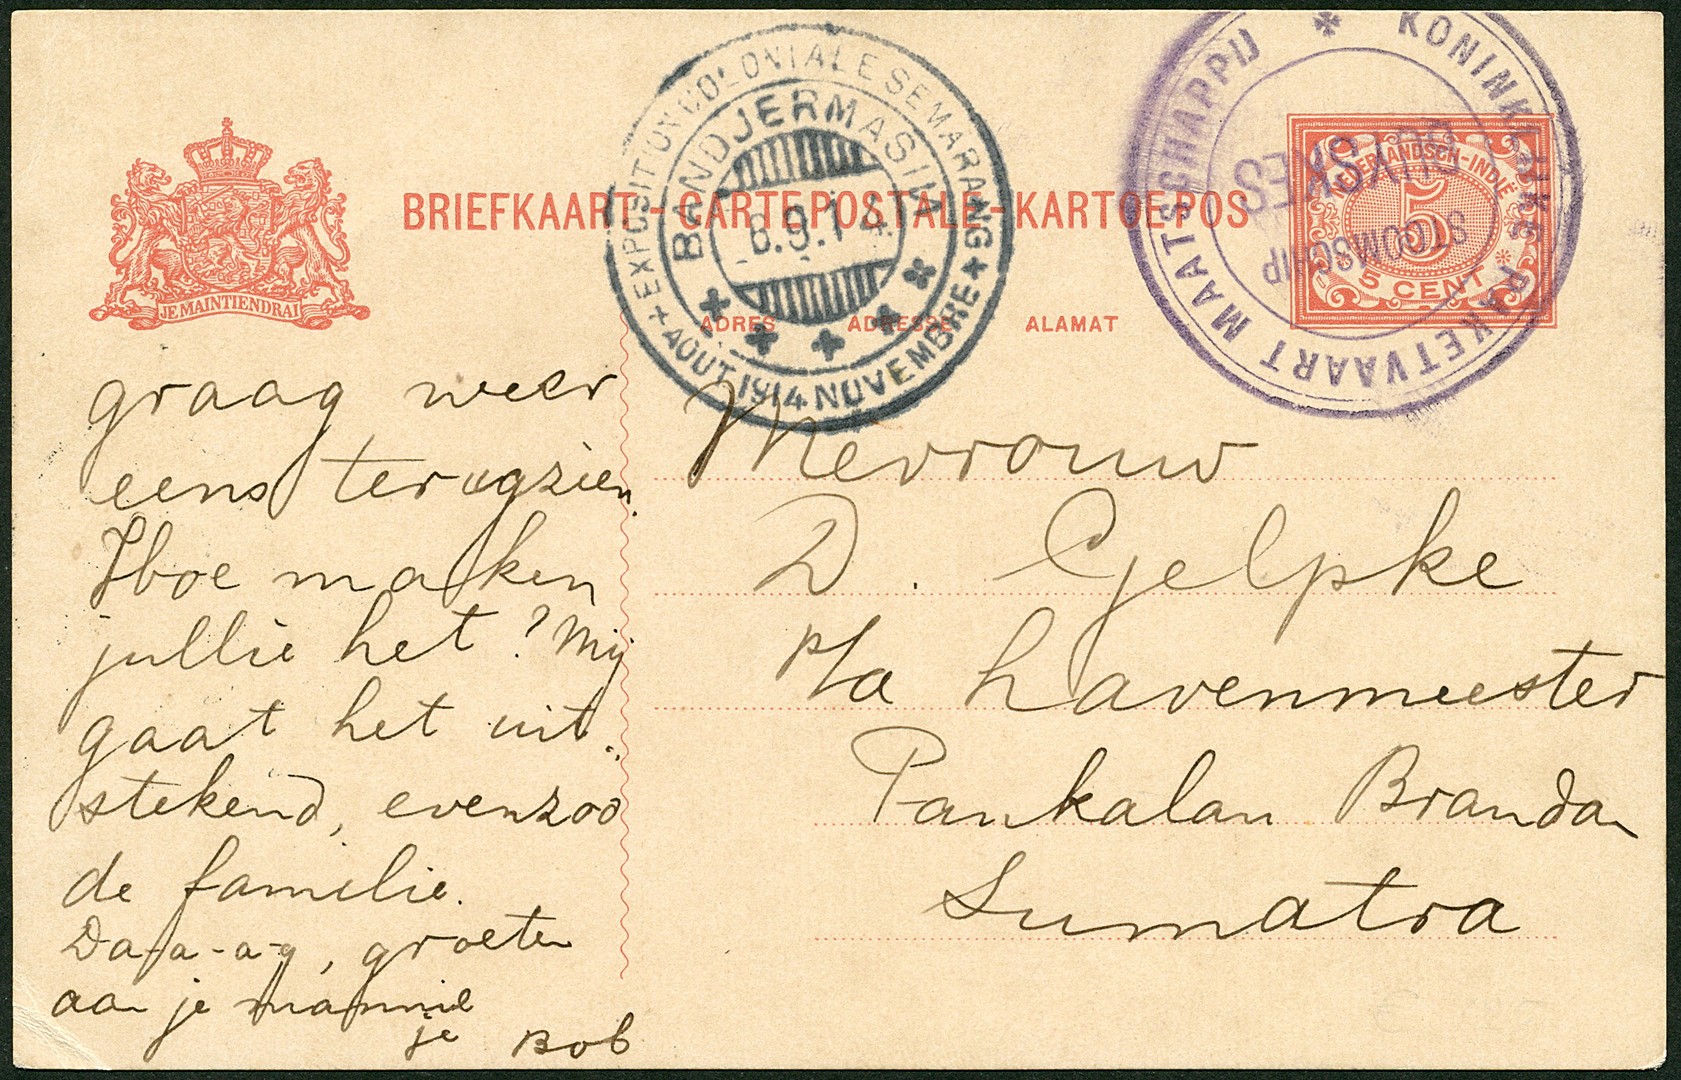 KONINKLIJKE PAKETVAART MAATSCHAPPIJ
STOOMSCHIP
EXPOSITION COLONIALE SEMARANG
AOUT 1914 NOVEMBRE
BANDJERMASIN
6.9.14
JE MAINTIENDRAI
BRIEFKAART-CARTE POSTALE-KARTOE POS
NEDERLANDSCH-INDIË
5
5 CENT
ADRES ADRESSE ALAMAT
graag weer
eens terugzien.
Hoe maken
jullie het? Mij
gaat het uit..
stekend, evenzoo
de familie.
Da-a-a-g, groeten
aan je mannie
je Bob
Mevrouw
D. Gelpke
p/a havenmeester
Pankalan Brandan
Sumatra